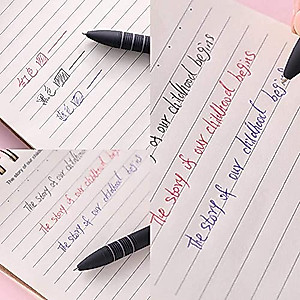 红色
黑色
蓝色
The story of our
The story of our childhood begins
The story of our childhood begins
The story of our childhood begins
of our childhood begins
The story of our childhood begins
The story of our childhood begins